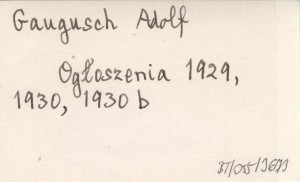 Gaugusch Adolf
Ogłoszenia 1929,
1930, 1930 b